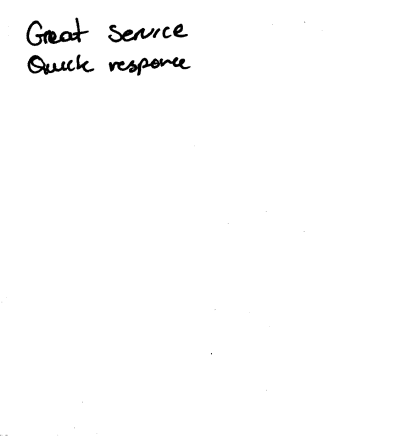 Great Service
Quick response